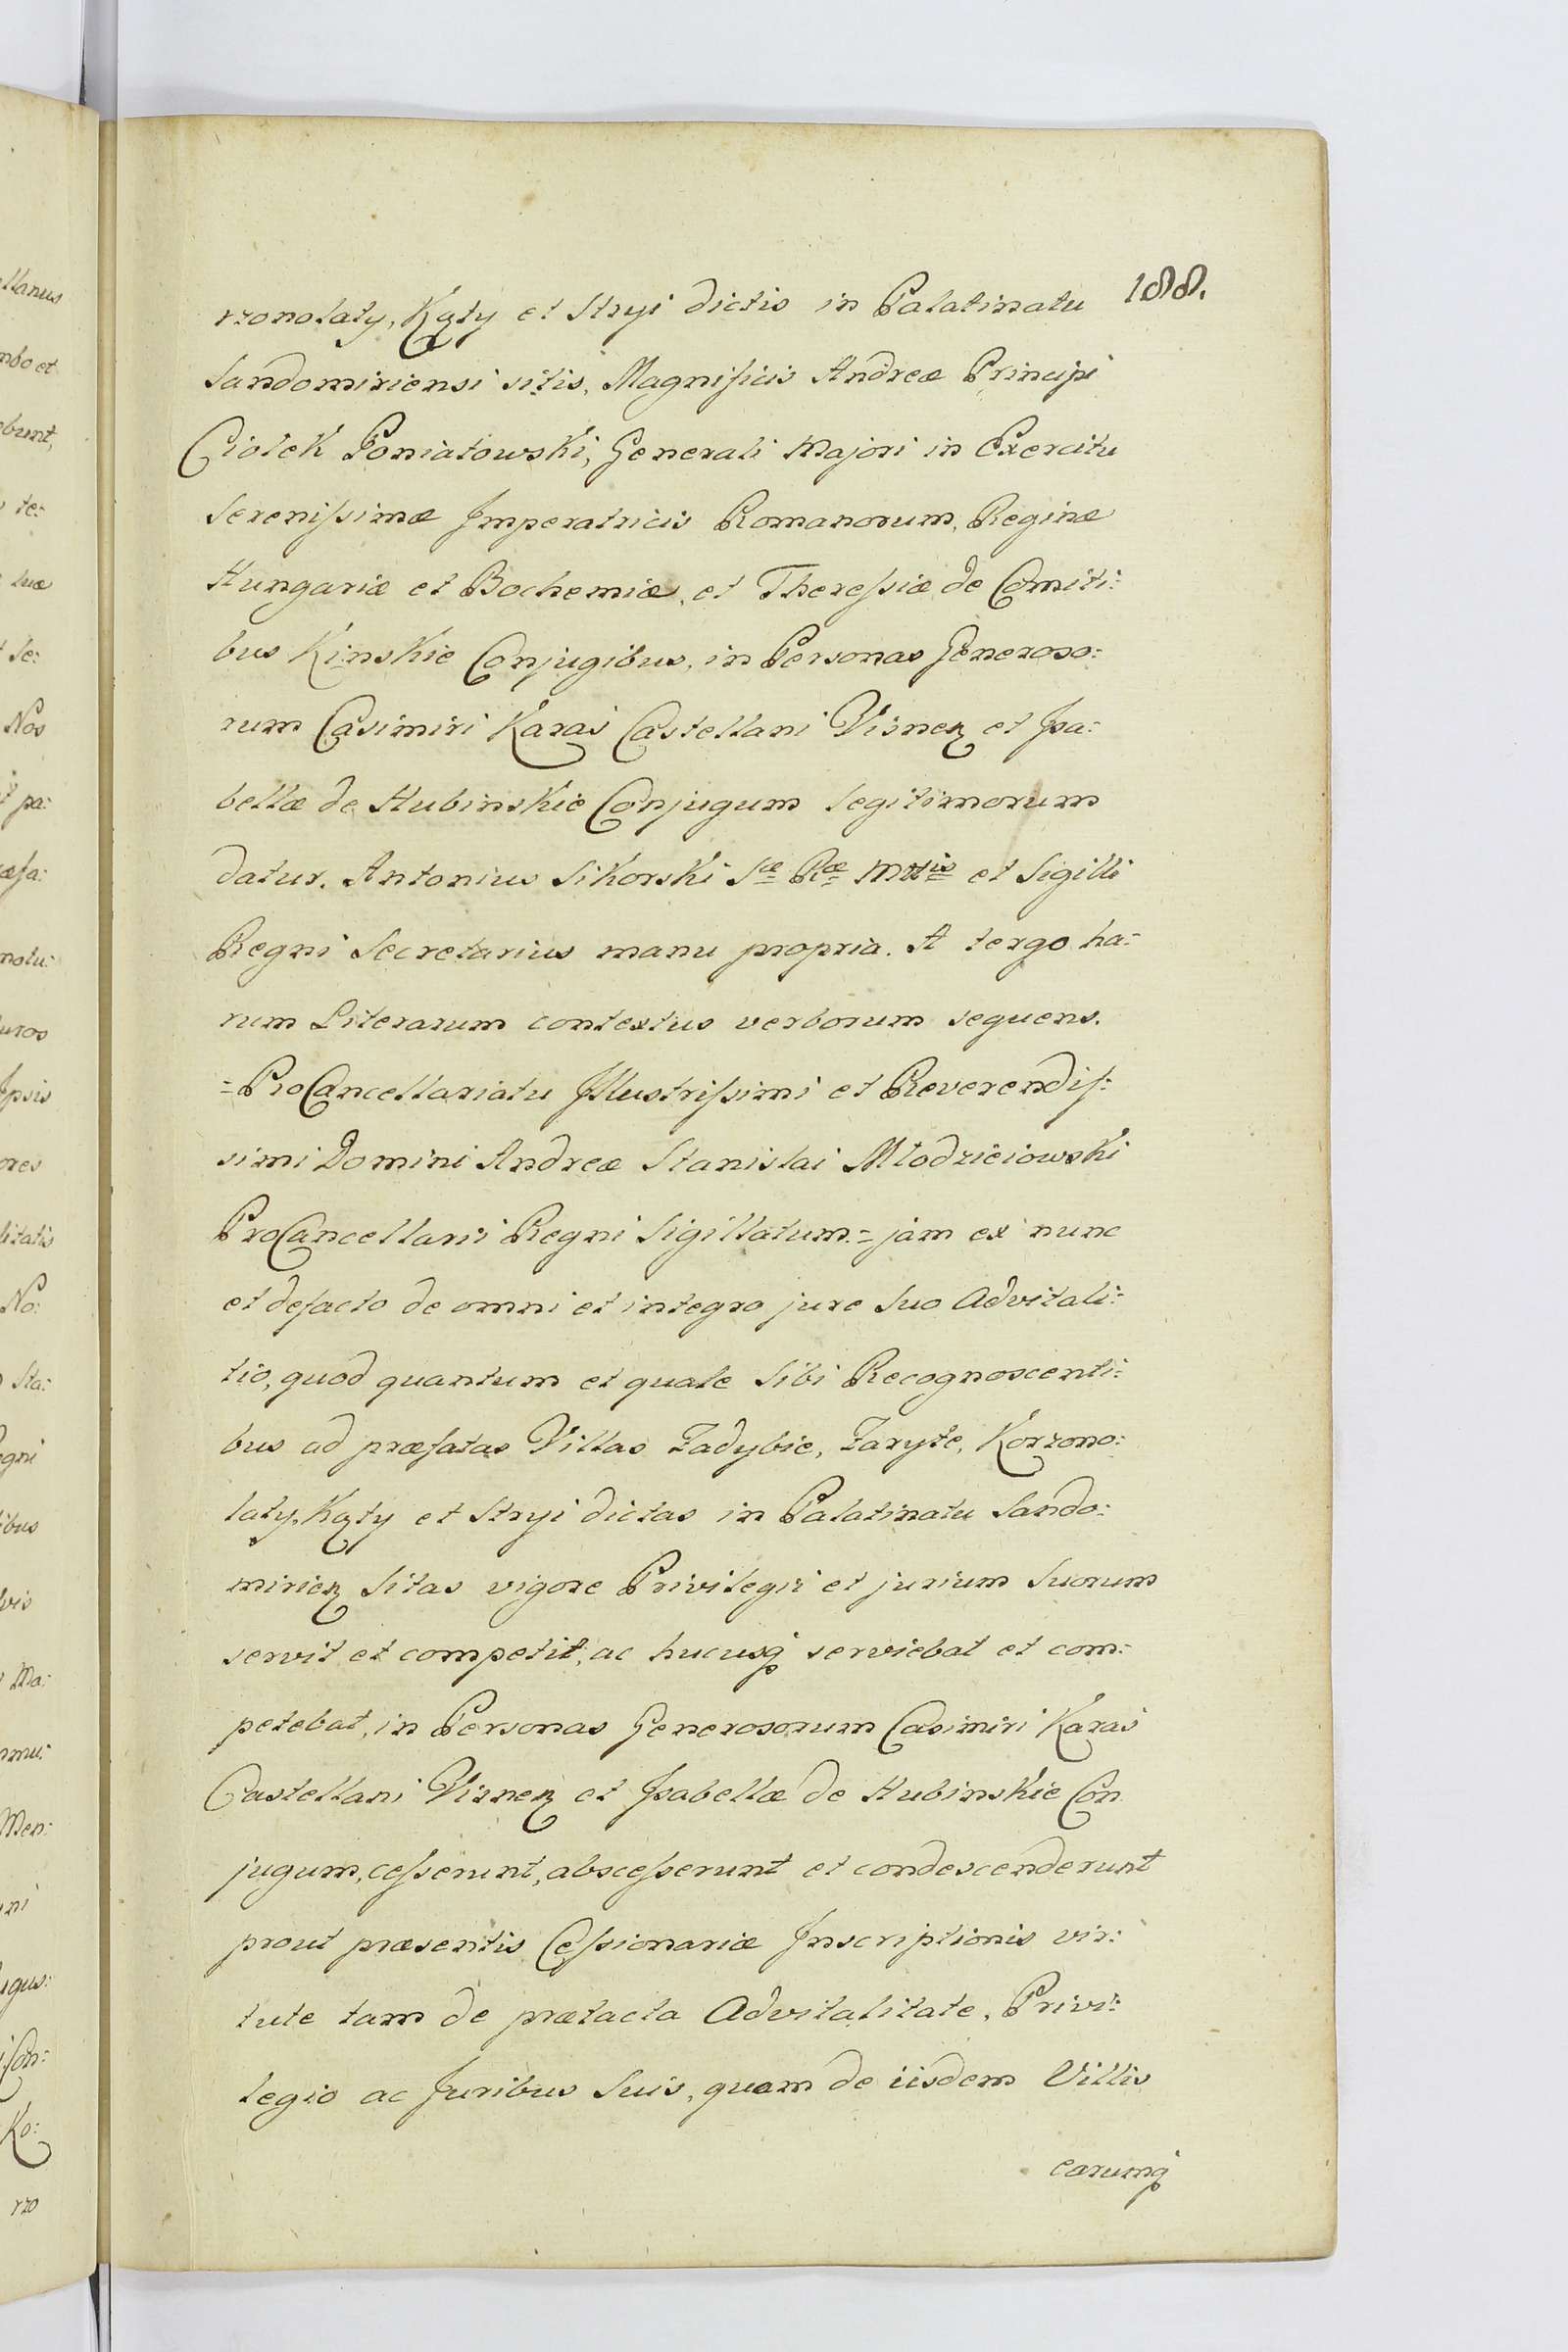 188.
rzonolaty, Kąty et Stryi dictis in Palatinatu
Sandomiriensi sitis, Magnificis Andreæ Principi
Ciołek Poniatowski, Generali Majori in Exercitu
Serenissimæ Imperatricis Romanorum, Reginæ
Hungariæ et Bochemiæ, et Theressiæ de Comiti:
bus Kinskie Conjugibus, in Personas Generoso:
rum Casimiri Karaś Castellani Visnen et Isa:
bellæ de Hubinskie Conjugum legitimorum
datur. Antonius Sikorski Sæ Ræ Mttis et Sigilli
Regni Secretarius manu propria. A tergo ha:
rum Literarum contextus verborum sequens.
=ProCancellariatu Illustrissimi et Reverendis:
simi Domini Andreæ Stanislai Młodzieiowski
ProCancellarii Regni Sigillatum.= jam ex nunc
et defacto de omni et integro jure Suo Advitali:
tio, quod quantum et quale Sibi Recognoscenti:
bus ad præfatas Villas Zadybie, Zaryte, Korzono:
laty, Kąty et Stryi dictas in Palatinatu Sando:
mirien Sitas vigore Privilegii et jurium Suorum
servit et competit, ac hucusq serviebat et com:
petebat, in Personas Generosorum Casimiri Karaś
Castellani Visnen et Isabellæ de Hubinskie Con
jugum, cesserunt, abscesserunt et condescenderunt
prout præsentis Cessionariæ Inscriptionis vir:
tute tam de prætacta Advitalitate, Privi:
legio ac Juribus Suis, quam de iisdem Villis
earumq
ellanus
mbo et
ebunt,
te:
tuæ
Se:
Nos
pa:
æfa:
natu:
uros
Ipsis
ores
litatis
No:
Sta:
egni
ibus
vis
Ma:
mmu:
Men:
ni
ugus:
Con:
Ko:
rzo